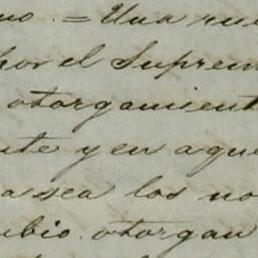 no. = Una rue
por el Suprem
otorgamient
nte y en aque
a sea los no
ubio. otorgan